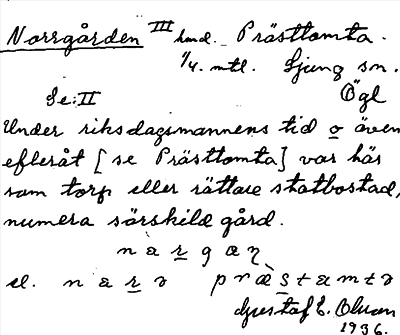 Norrgården III hmd. Prästtomta.
1/4. mtl. Ljung sn.
Se: II Ögl
Under riksdagsmannens tid o även
efteråt [se Prästtomta] var här
som torp eller rättare statbostad,
numera särskild gård.
n a r g æ ŋ
el. n a r ɔ p r æ̀ s t a m t ɔ
Gustaf E. Olsson
1936.